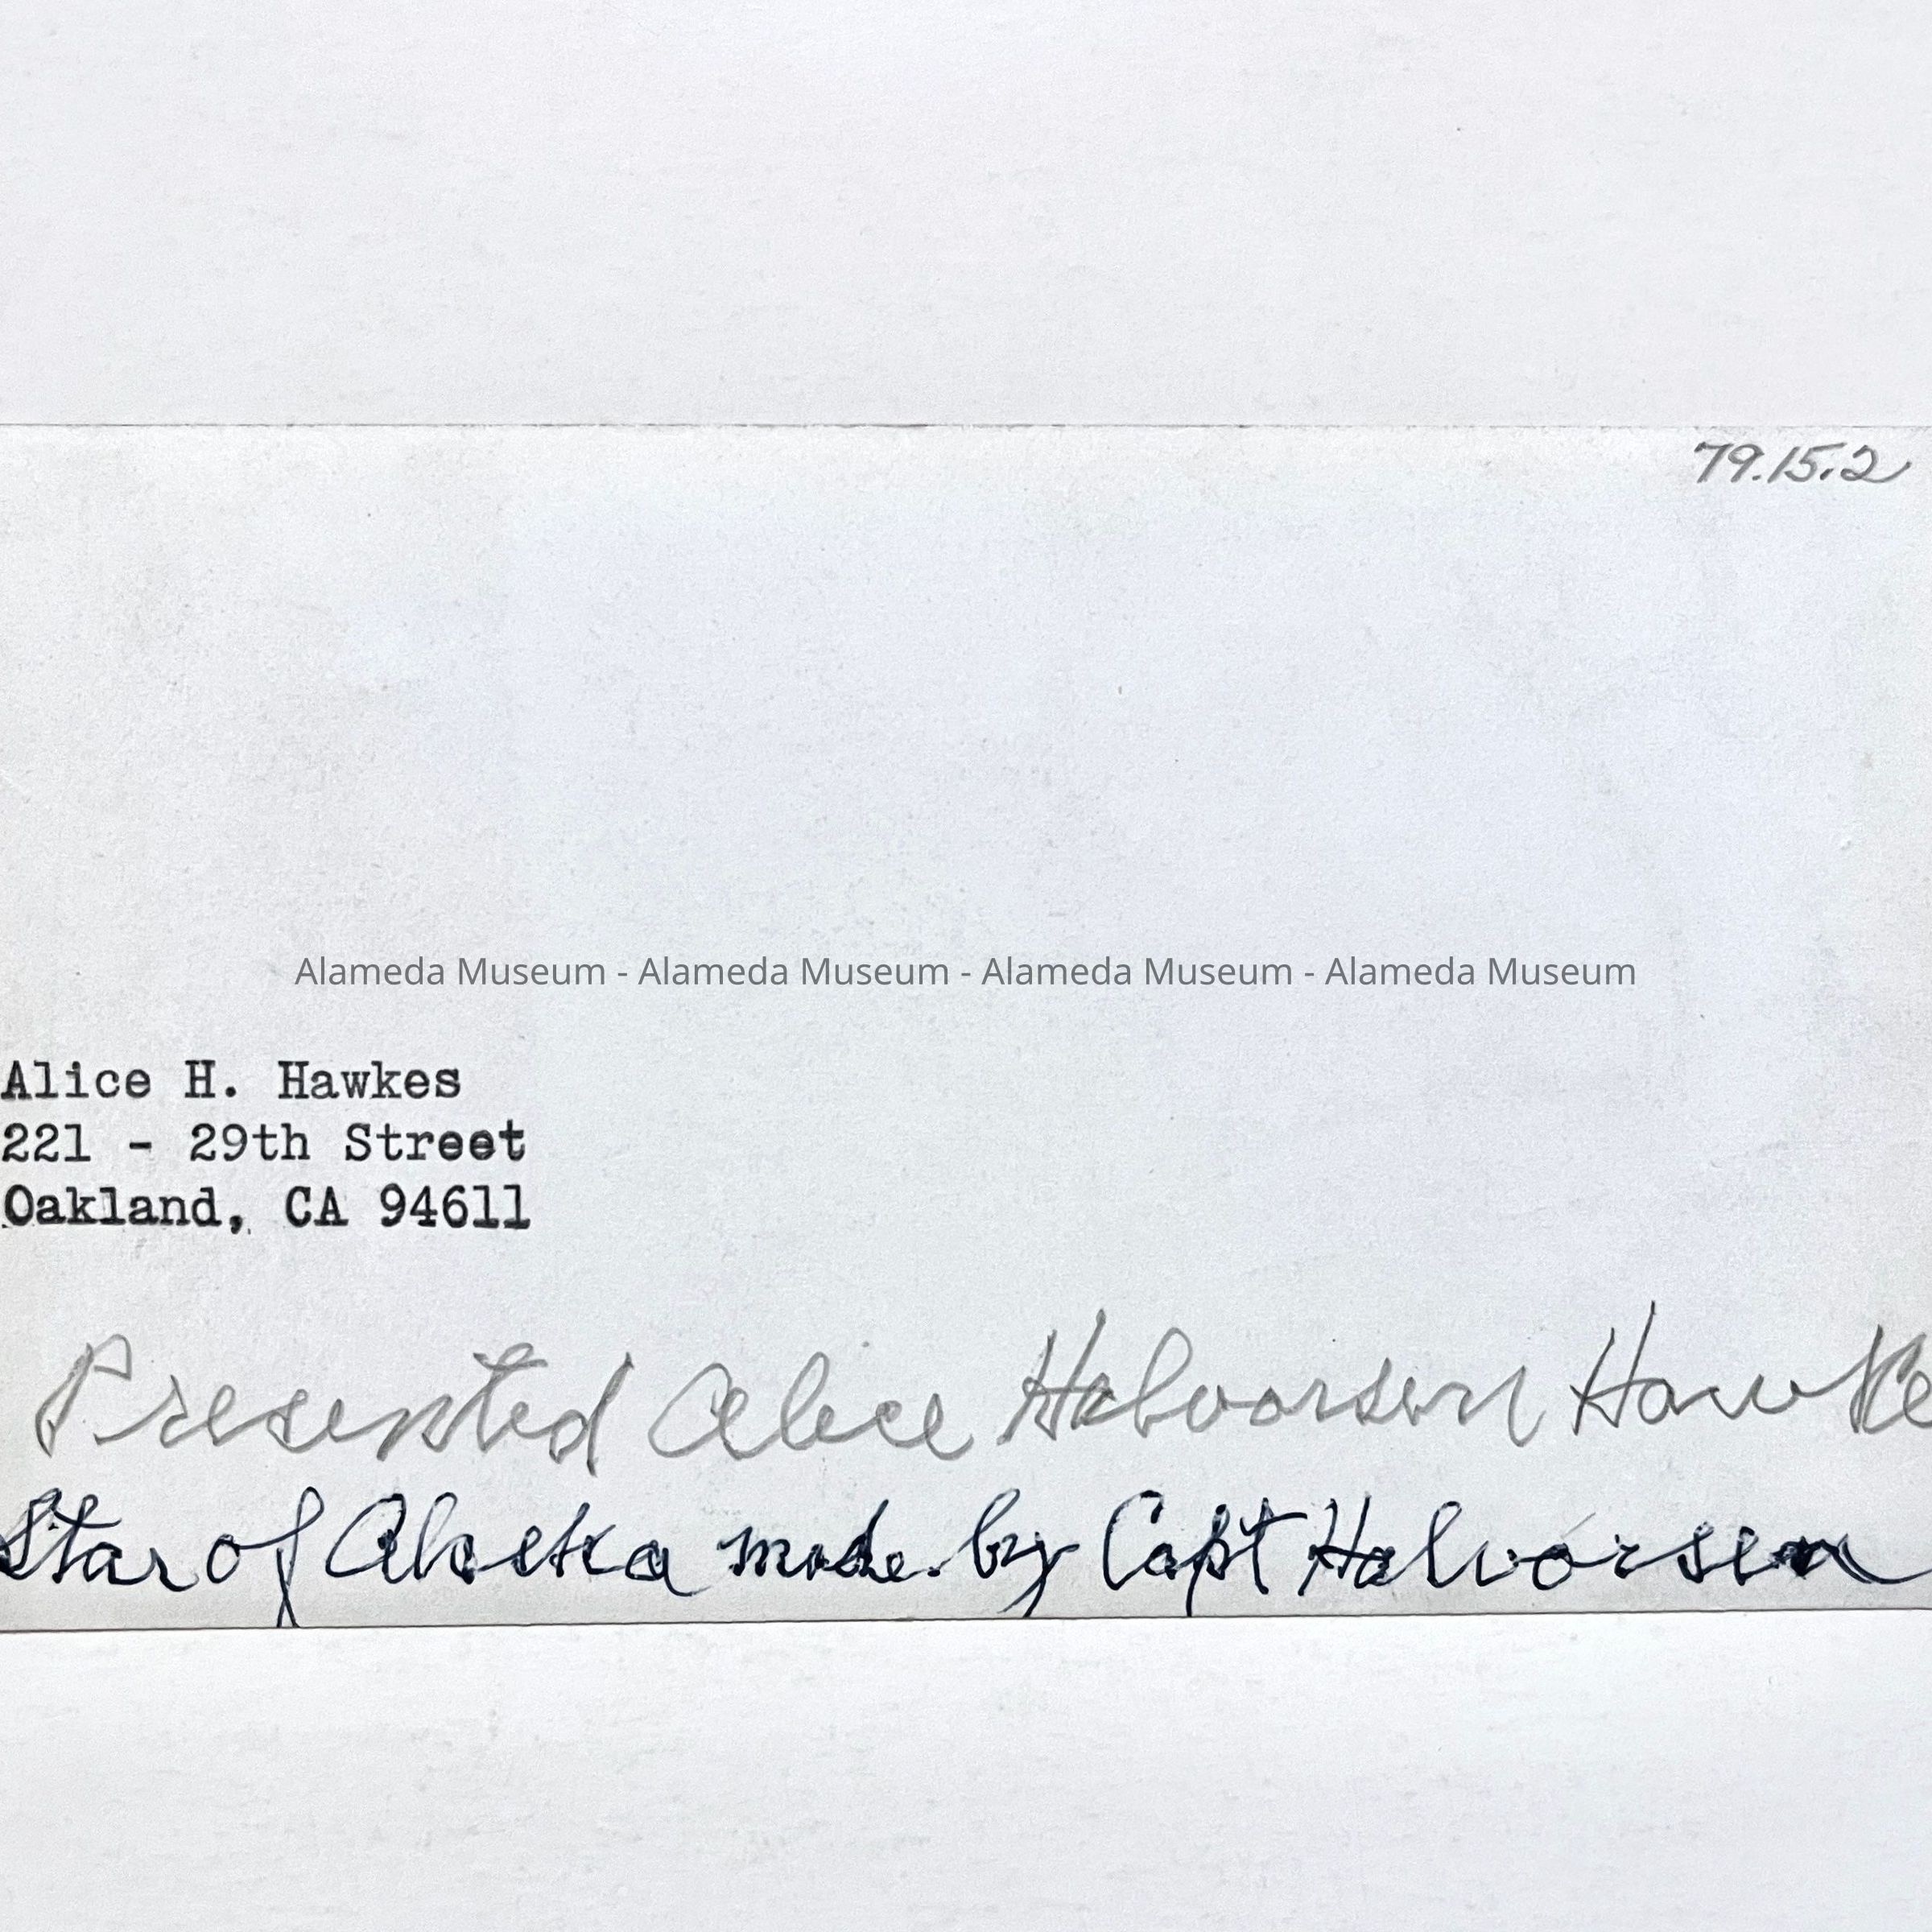 79.15.2
Alameda Museum - Alameda Museum - Alameda Museum - Alameda Museum
Alice H. Hawkes
221 - 29th Street
Oakland, CA 94611
Presented Alice Halvorsen Hawke
Star of Alaska made by Capt Halvorsen